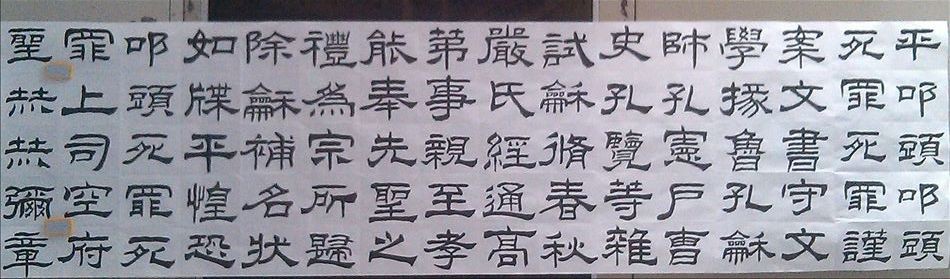 平叩頭叩頭
死罪死罪謹
案文書守文
學掾魯孔龢
師孔憲戶曹
史孔覽等雜
試龢脩春秋
嚴氏經通高
第事親至孝
能奉先聖之
禮為宗所歸
除龢補名狀
如牒平惶恐
叩頭死罪死
罪上司空府
聖赫赫彌章